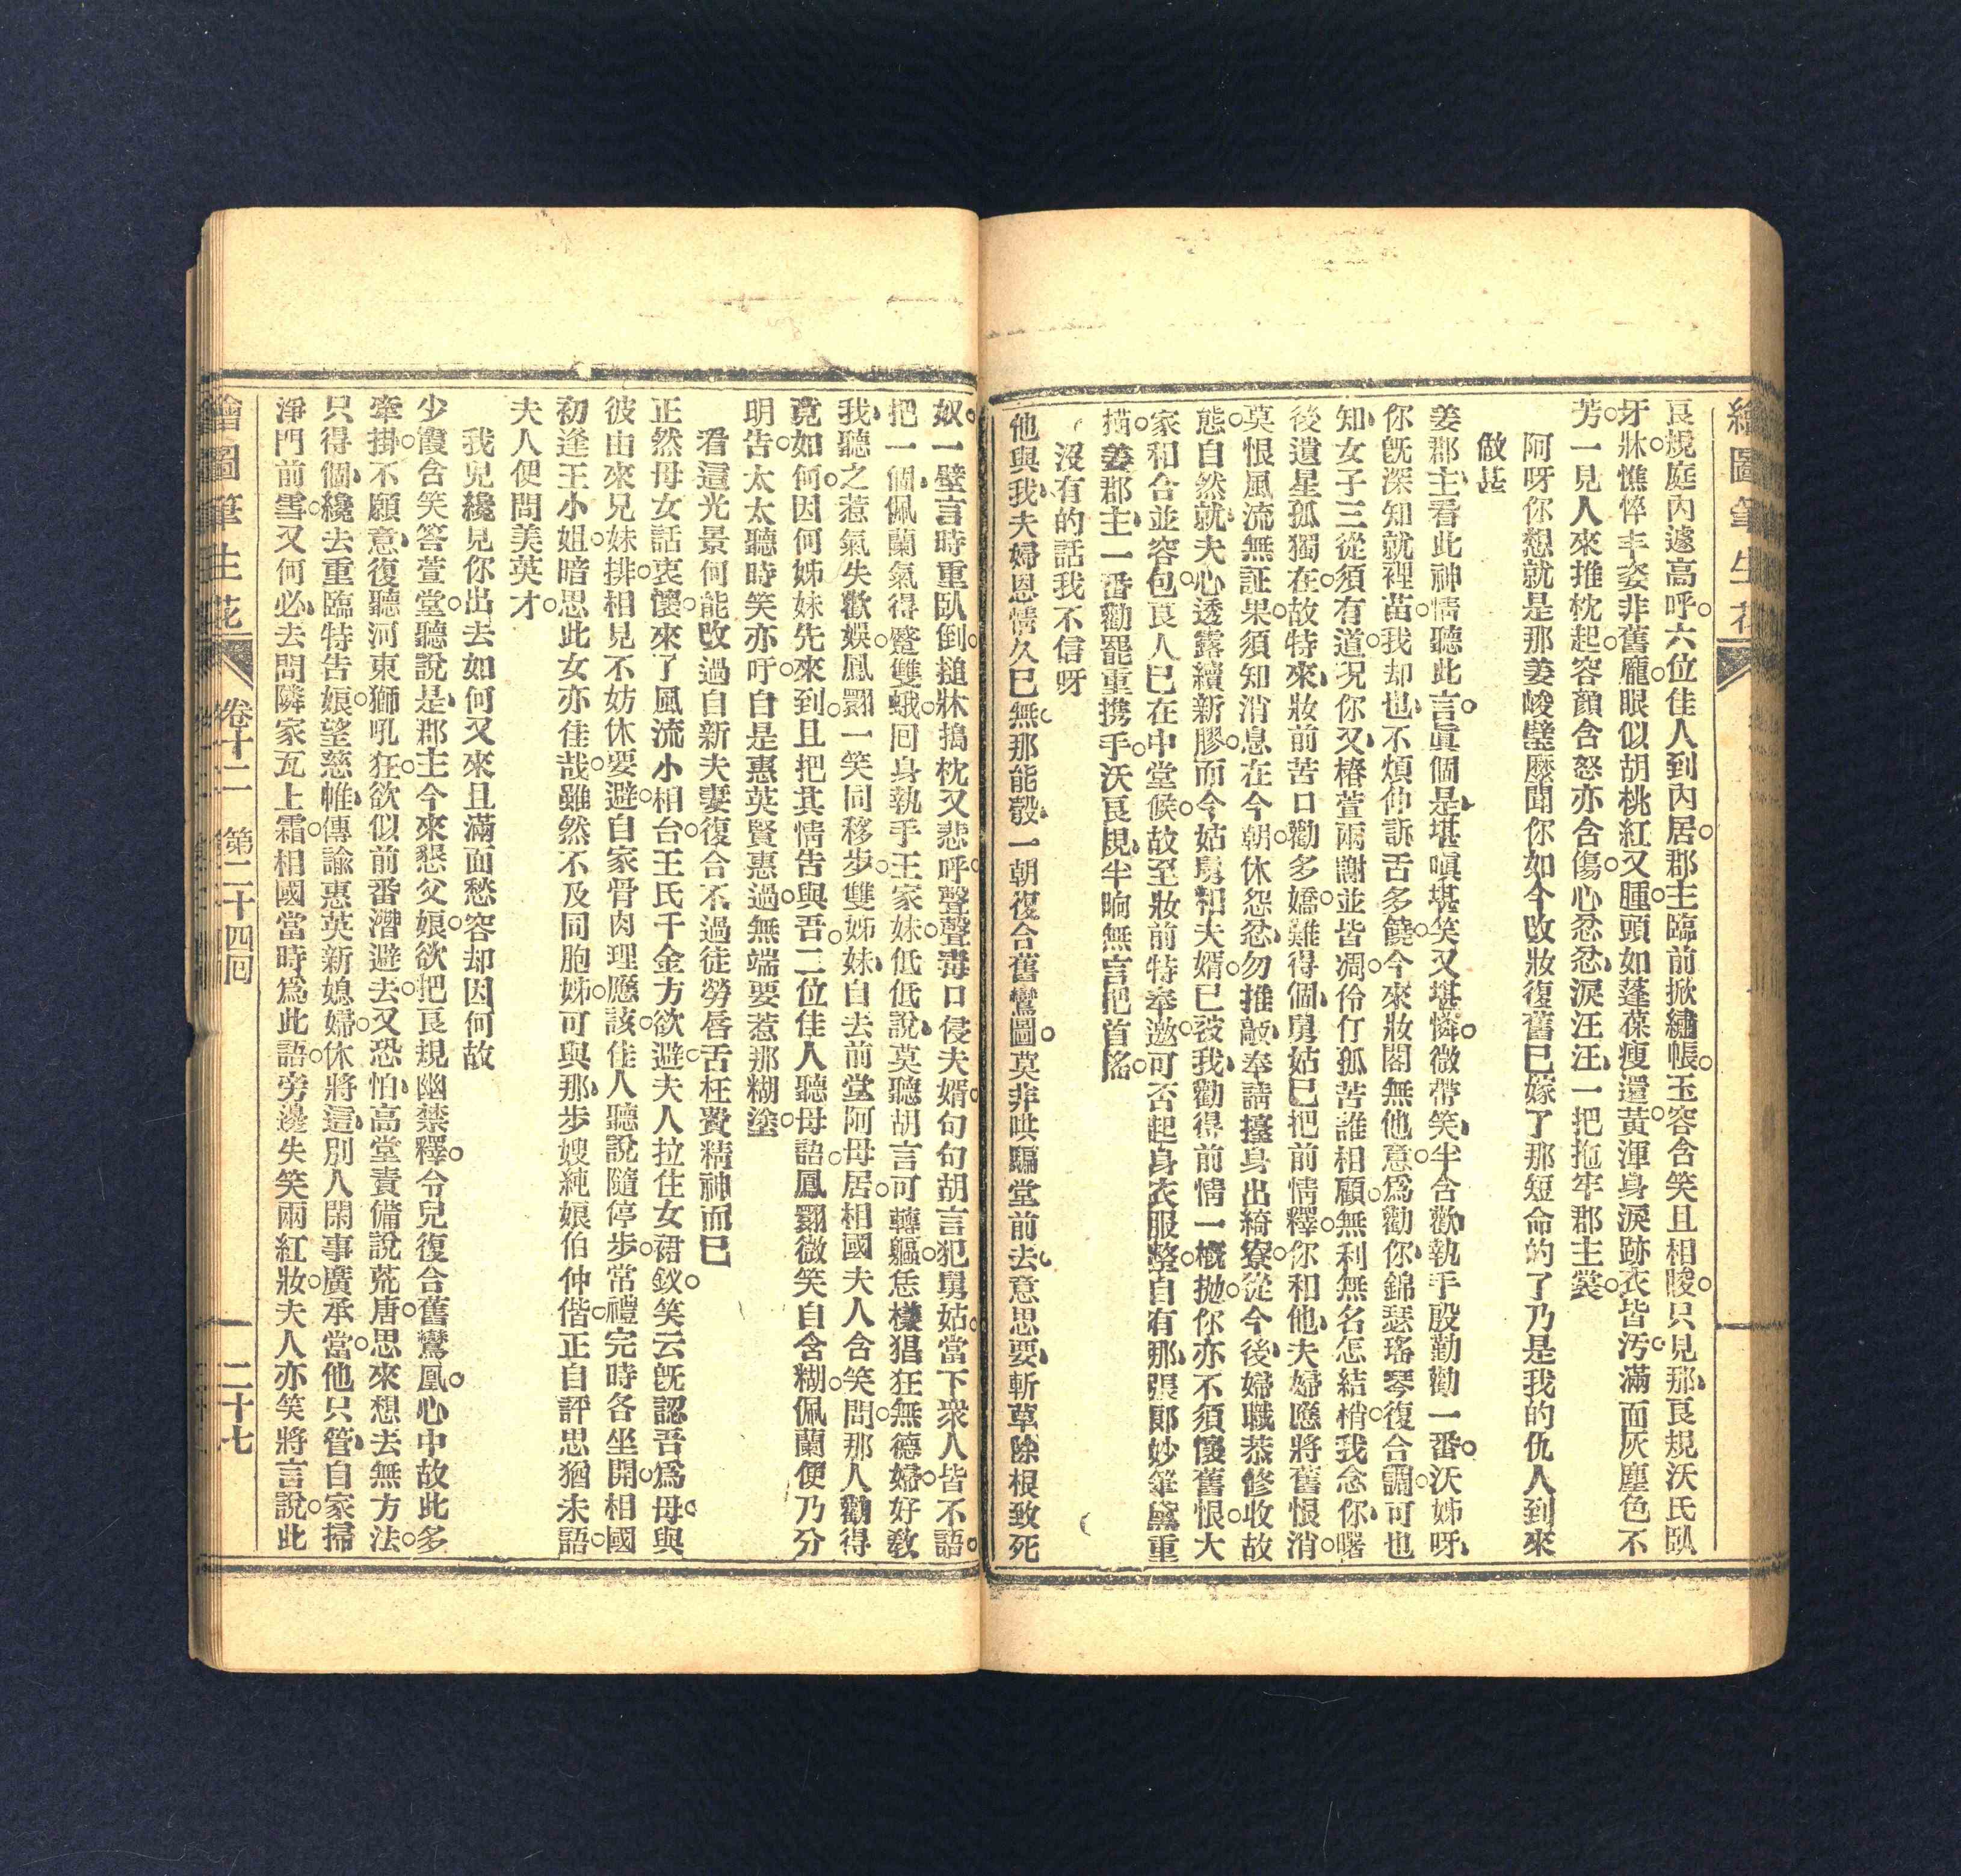 繪圖筆生花
良規庭內遽高呼六位佳人到內居郡主臨前掀繡帳玉容含笑且相睃只見那良規沃氏臥
牙牀憔悴丰姿非舊龐眼似胡桃紅又腫頭如蓬葆瘦還黃渾身淚跡衣皆汚滿面灰塵色不
芳一見人來推枕起容顏含怒亦含傷心忍忍淚汪汪一把拖牢郡主裳
阿呀你想就是那姜峻璧麽聞你如今改妝復舊已嫁了那短命的了乃是我的仇人到來
做甚
姜郡主看此神情聽此言眞個是堪嗔堪笑又堪憐微帶笑半含歡執手殷勤勸一番沃姊呀
你旣深知就裡苗我却也不煩仰訴舌多饒今來妝閣無他意爲勸你錦瑟瑤琴復合調可也
知女子三從須有道况你又椿萱兩謝並皆凋伶仃孤苦誰相顧無利無名怎結梢我念你曙
後遺星孤獨在故特來妝前苦口勸多嬌難得個舅姑已把前情釋你和他夫婦應將舊恨消
莫恨風流無証果須知消息在今朝休怨忿勿推敲奉請擡身出綺寮從今後婦職恭修收故
態自然就夫心透露續新膠而今姑舅和夫婿已被我勸得前情一槪抛你亦不須懷舊恨大
家和合並容包良人已在中堂候故至妝前特奉邀可否起身衣服整自有那張郞妙筆黛重
描姜郡主一番勸罷重携手沃良規半晌無言把首搖
沒有的話我不信呀
他與我夫婦恩情久已無那能彀一朝復合舊鸞圖莫非哄騙堂前去意思要斬草除根致死
奴一壁言時重臥倒搥牀搗枕又悲呼聲聲毒口侵夫婿句句胡言犯舅姑當下衆人皆不語
把一個佩蘭氣得蹙雙蛾回身執手王家妹低低說莫聽胡言可轉軀恁樣猖狂無德婦好敎
我聽之惹氣失歡娛鳳翾一笑同移步雙姊妹自去前堂阿母居相國夫人含笑問那人勸得
竟如何因何姊妹先來到且把其情告與吾二位佳人聽母語鳳翾微笑自含糊佩蘭便乃分
明告太太聽時笑亦吁自是惠英賢惠過無端要惹那糊塗
看這光景何能改過自新夫妻復合不過徒勞唇舌枉費精神而已
正然母女話衷懷來了風流小相台王氏千金方欲避夫人拉住女裙釵笑云旣認吾爲母與
彼由來兄妹排相見不妨休要避自家骨肉理應該佳人聽說隨停步常禮完時各坐開相國
初逢王小姐暗思此女亦佳哉雖然不及同胞姊可與那步嫂純娘伯仲偕正自評思猶未語
夫人便問美英才
我兒纔見你出去如何又來且滿面愁容却因何故
少霞含笑答萱堂聽說是郡主今來懇父娘欲把良規幽禁釋令兒復合舊鸞凰心中故此多
牽掛不願意復聽河東獅吼狂欲似前番潛避去又恐怕高堂責備說荒唐思來想去無方法
只得個纔去重臨特告娘望慈帷傳諭惠英新媳婦休將這別人閑事廣承當他只管自家掃
淨門前雪又何必去問隣家瓦上霜相國當時爲此語旁邊失笑兩紅妝夫人亦笑將言說此
繪圖筆生花 卷十二 第二十四回 二十七